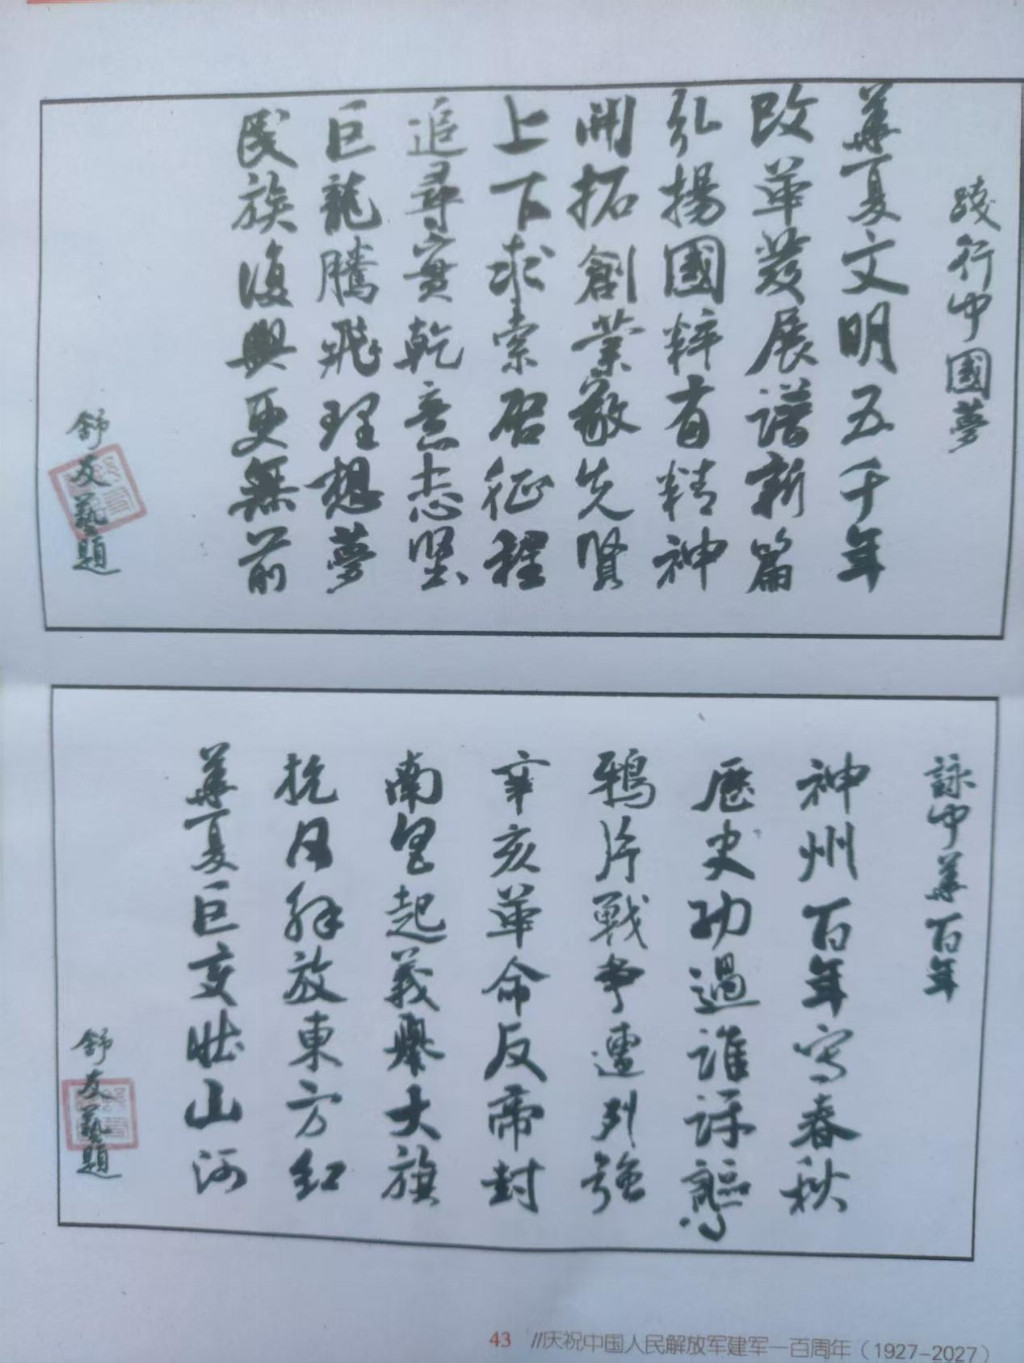 踐行中國夢
華夏文明五千年
改革發展譜新篇
弘揚國粹有精神
開拓創業敬先賢
上下求索啓征程
追尋實乾意志堅
巨龍騰飛理想夢
民族復興更無前
舒友藝題
詠中華百年
神州百年寫春秋
歷史功過誰評
鴉片戰爭遭列強
辛亥革命反帝封
南昌起義舉大旗
抗日解放東方紅
華夏巨變壯山河
舒友藝題
43 //庆祝中国人民解放军建军一百周年（1927-2027）